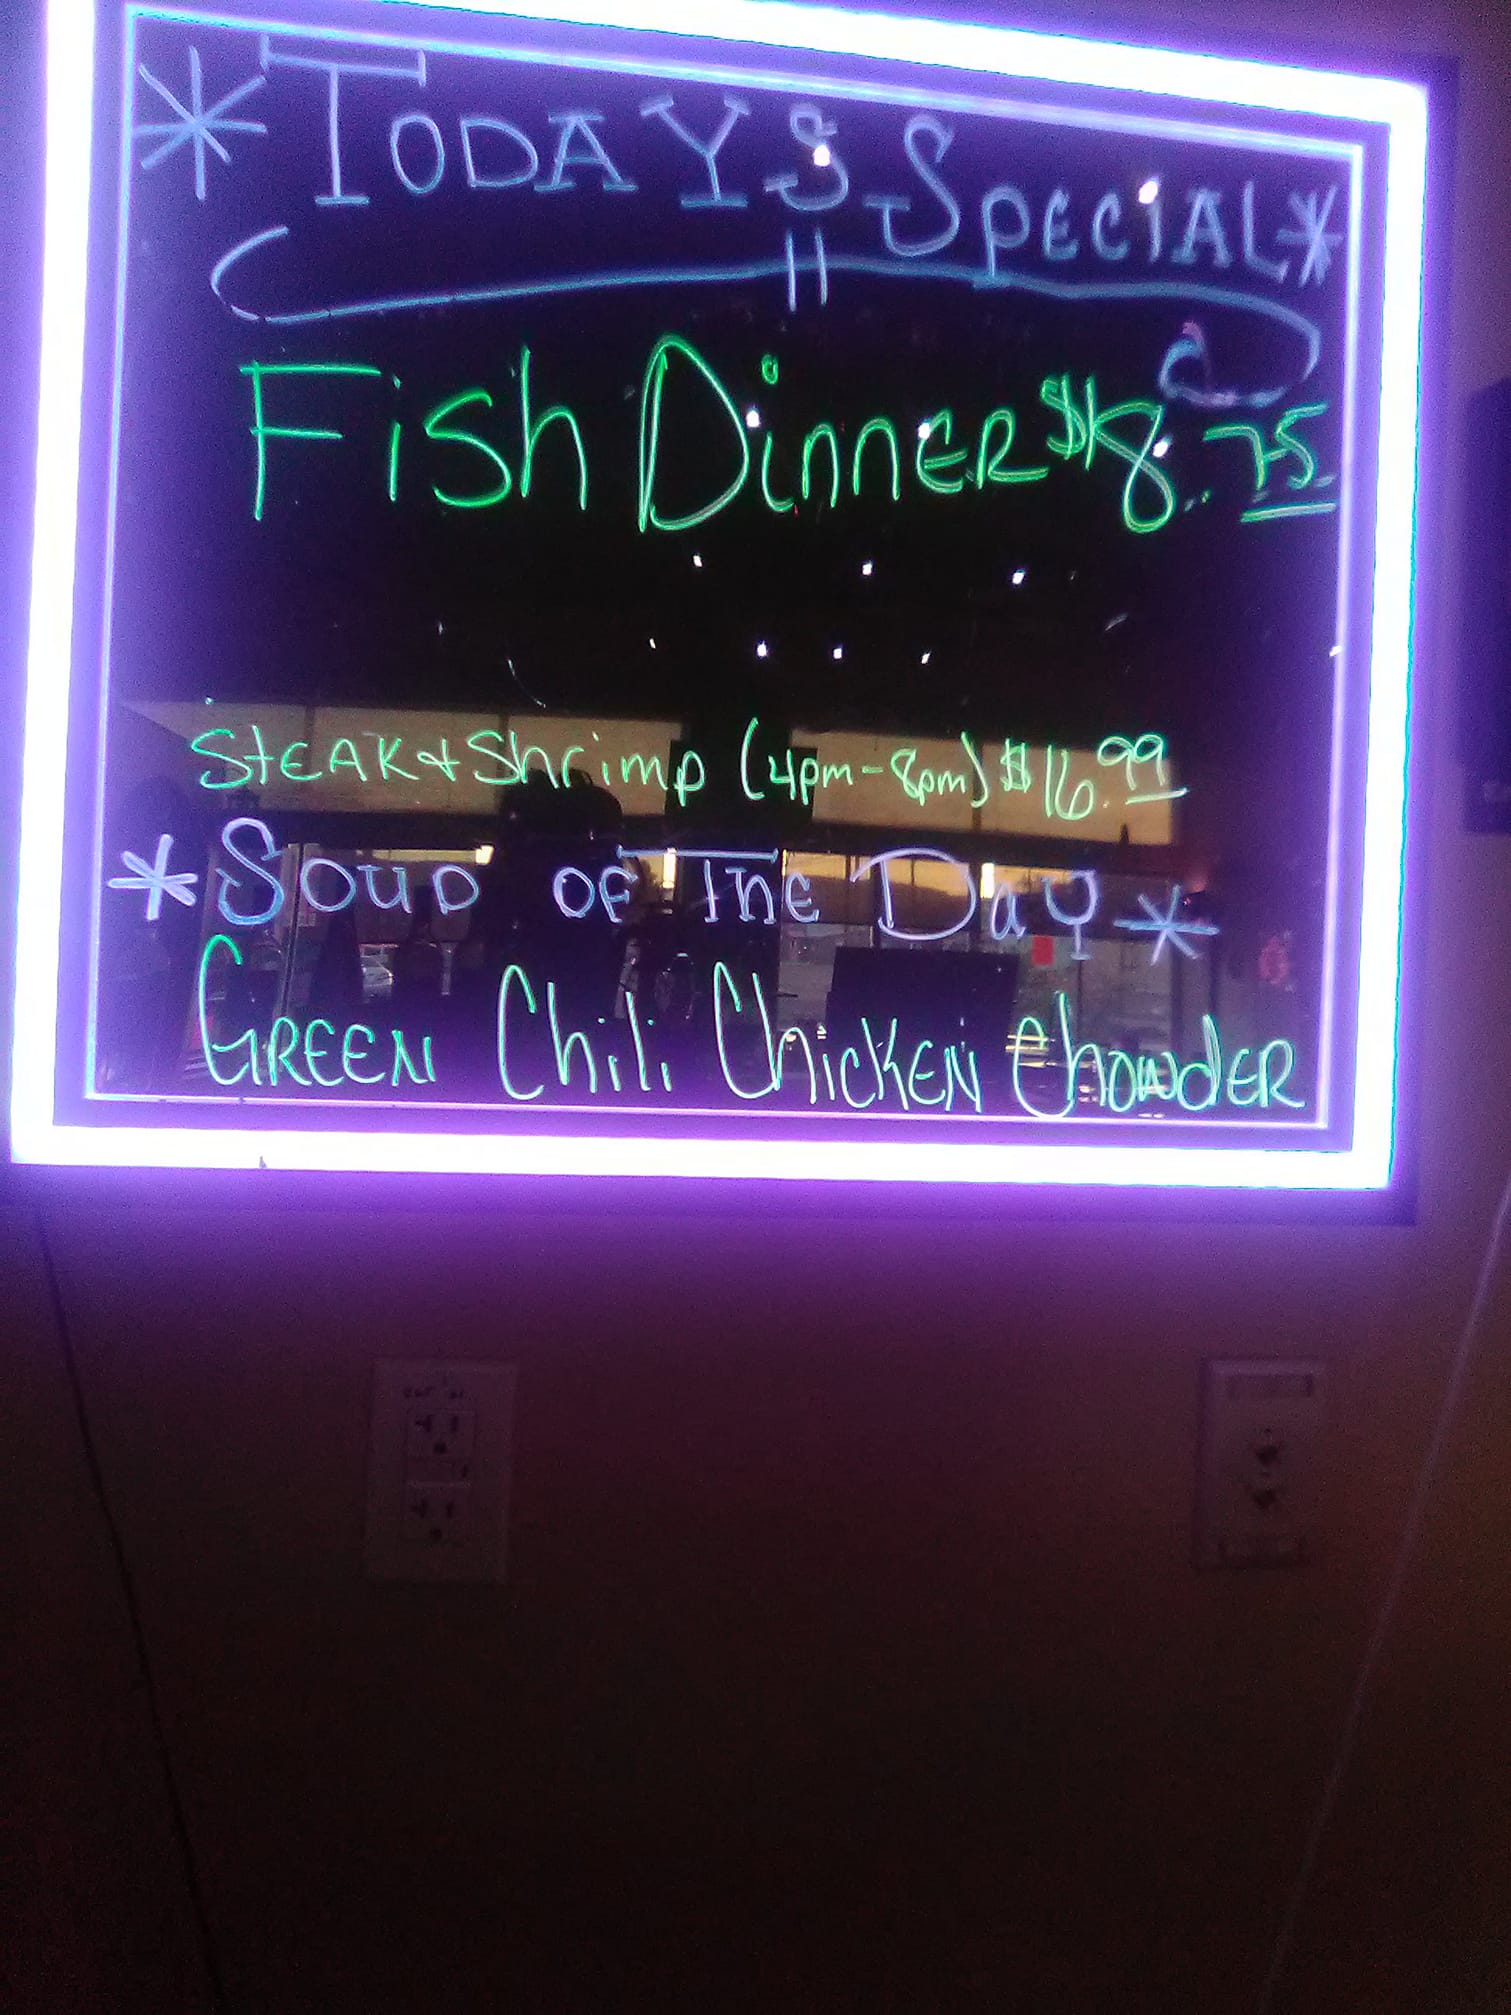 *TODAYS SPECIAL*
Fish DinnER $8.75
StEAK & Shrimp (4pm-8pm) $16.99
*SOUP OF THE DaY*
GREEN Chili ChicKEN ChowdER